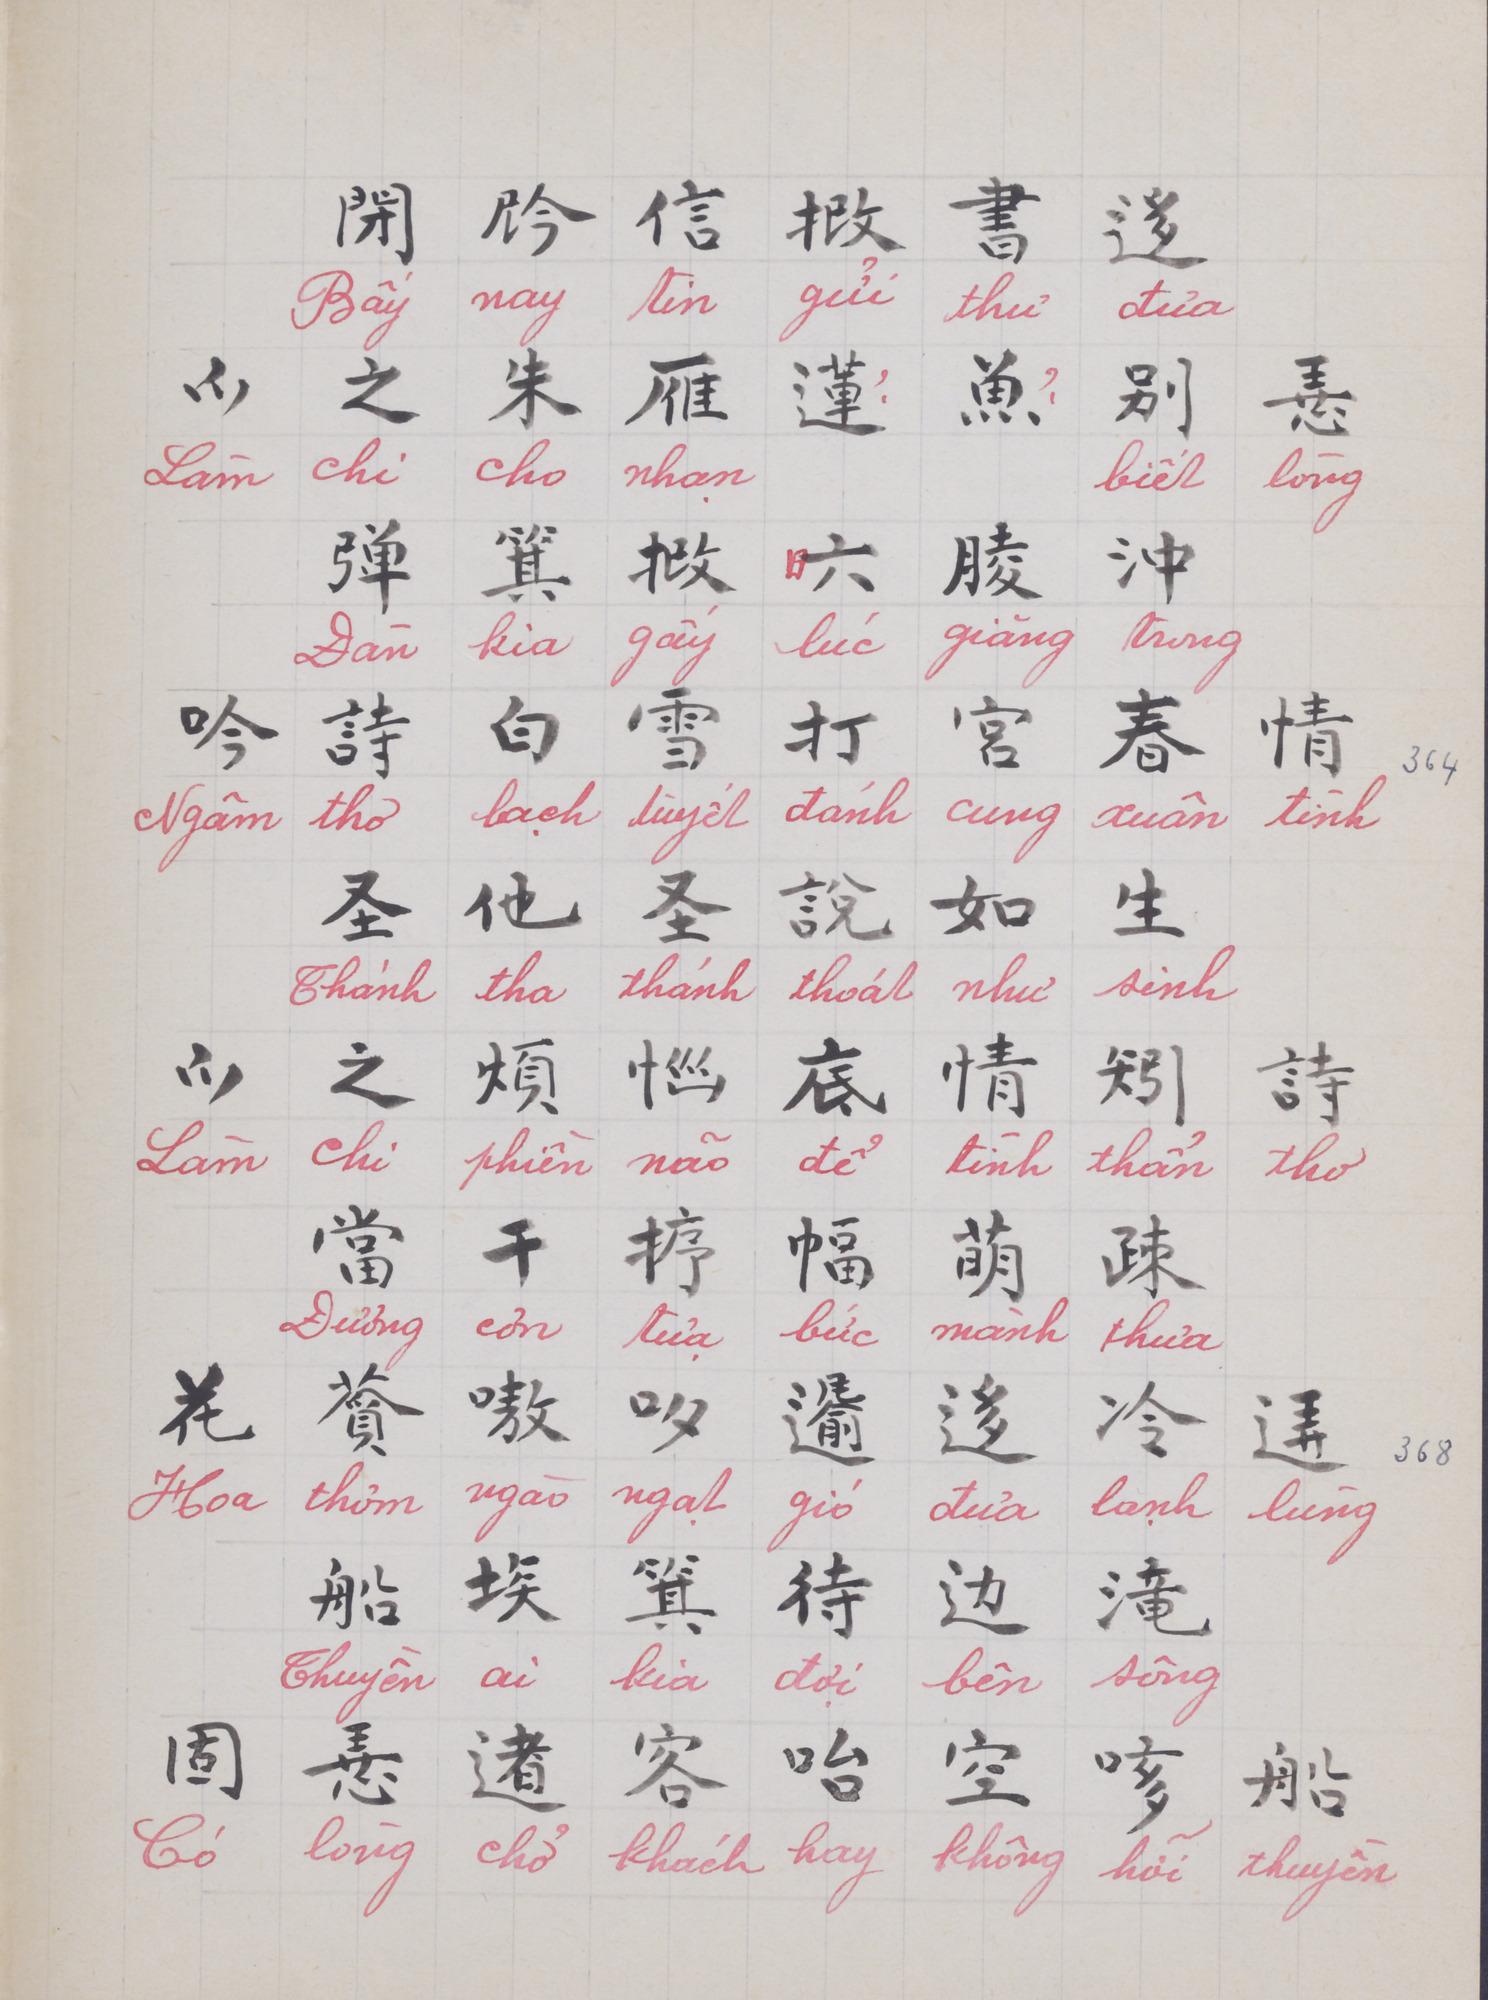 閉 肣 信 㨋 書 迻
Bấy nay tin gửi thư đưa
𪜀 之 朱 雁 蓮 魚 别 𢚸
? ?
Làm chi cho nhạn biết lòng
弹 箕 㨋 𣅶 䔖 冲
Đàn kia gảy lúc giăng trong
吟 詩 白 雪 打 宮 春 情 364
Ngâm thơ bạch tuyết đánh cung xuân tình
圣 他 圣 說 如 生
Thánh tha thánh thoát như sinh
𪜀 之 煩 惱 底 情 矧 詩
Làm chi phiền não để tình thẩn thơ
當 干 㨅 幅 萌 疎
Đương cơn tựa bức mành thưa
花 𦹳 嗷 㕰 𨕭 迻 冷 𨓡 368
Hoa thơm ngào ngạt gió đưa lạnh lùng
船 埃 箕 待 边 滝
Thuyền ai kia đợi bên sông
固 𢚸 䢐 客 咍 空 嗲 船
Có lòng chở khách hay không hỡi thuyền